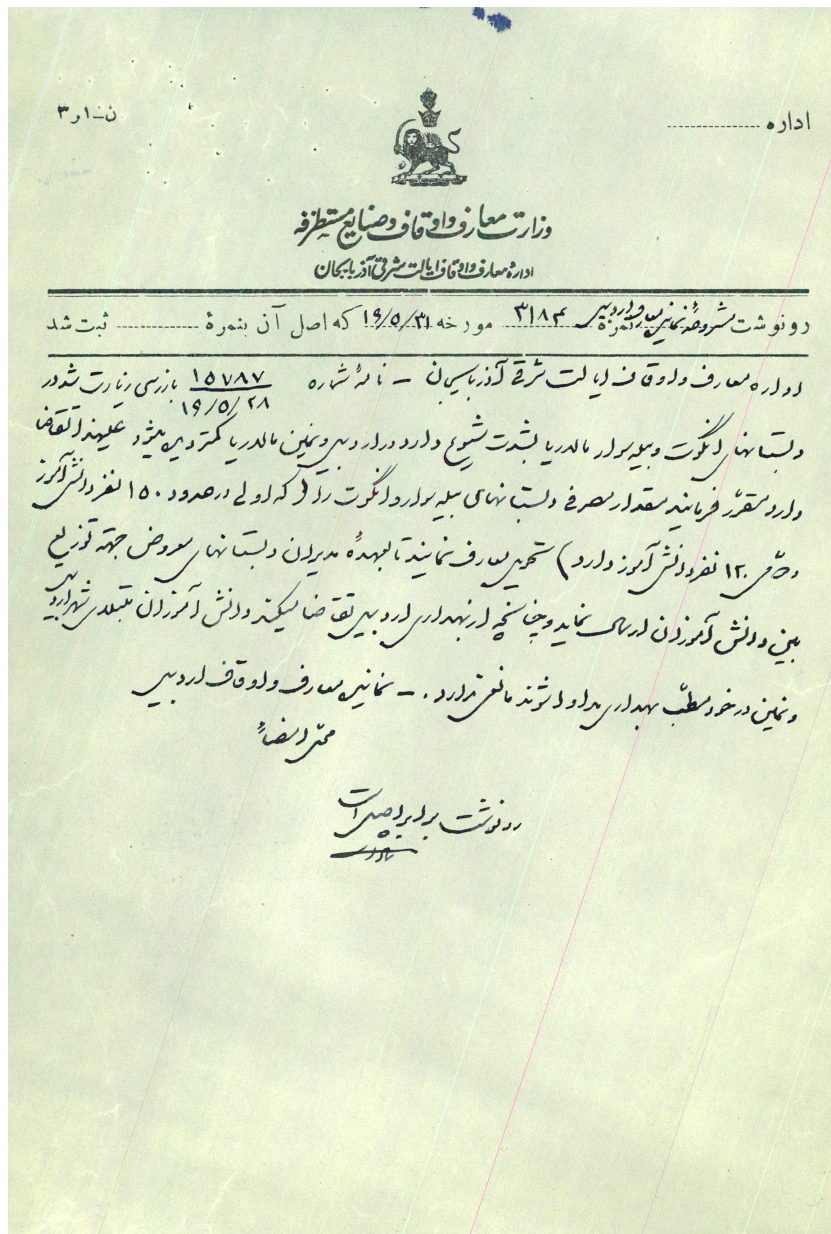 اداره
ن-۱ر۳
وزارت معارف و اوقاف و صنایع مستظرفه
اداره معارف و اوقاف ایالت شرقی آذربایجان
رونوشت مشروحهٔ نمایندگی معارف اردبیل نمرهٔ ۳۱۸۴ مورخه ۱۹/۵/۳۱ که اصل آن بنمرهٔ ثبت شد
اداره معارف و اوقاف ایالت شرقی آذربایجان - نامهٔ شماره ۱۵۷۸۷ بازرسی زیارت شد در
۱۹/۵/۲۸
دبستانهای انگوت و بیله سوار مالاریا بشدت شیوع دارد در اردبیل و نمین مالاریا کمتر دیده میشود علیهذا تقاضا
دارد مقرر فرمایند مقدار مصرفی دبستانهای بیله سوار و انگوت را ( که اولی در حدود ۱۵۰ نفر دانش آموز
و دومی ۱۲۰ نفر دانش آموز دارد ) تحویل معارف نمایند تا بعهدهٔ مدیران دبستانهای معروض جهة توزیع
بین دانش آموزان ارسال نماید و چنانچه از بهداری اردبیل تقاضا میکند دانش آموزان مبتلای شهر اردبیل
و نمین در خود مطب بهداری مداوا شوند مانعی ندارد . - نماینده معارف و اوقاف اردبیل
محل امضاء
رونوشت برابر اصل است